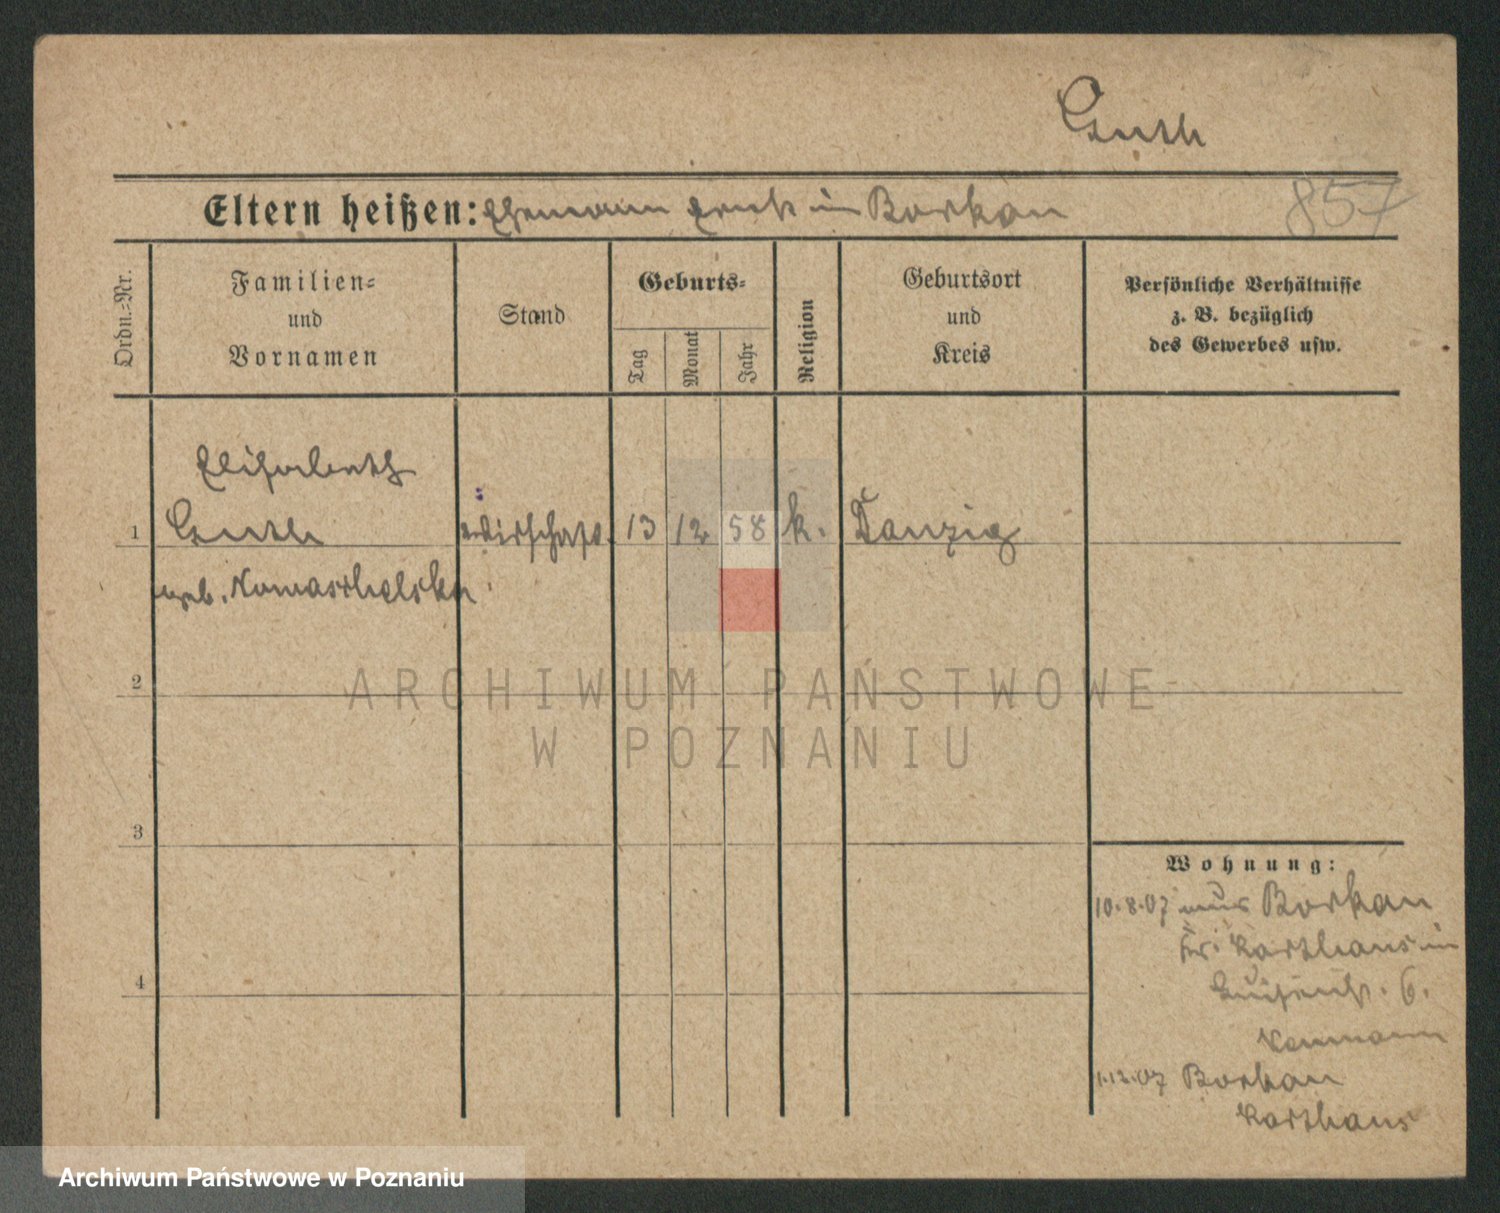 Guth
857
Eltern heißen: Ehemann Erich in Borkau
Ordn.-Nr.
Familien-
und
Vornamen
Stand
Geburts-
Tag
Monat
Jahr
Religion
Geburtsort
und
Kreis
Persönliche Verhältnisse
z. B. bezüglich
des Gewerbes usw.
Elisabeth
1 Guth Wirtschaft. 13 12 58 k. Danzig
geb.
ARCHIWUM PAŃSTWOWE
W POZNANIU
2
3
4
Wohnung:
10.8.07 aus Borkau
Kr. Karthaus in
Luisenstr. 6.
1.12.07 Borkau
Karthaus
Archiwum Państwowe w Poznaniu